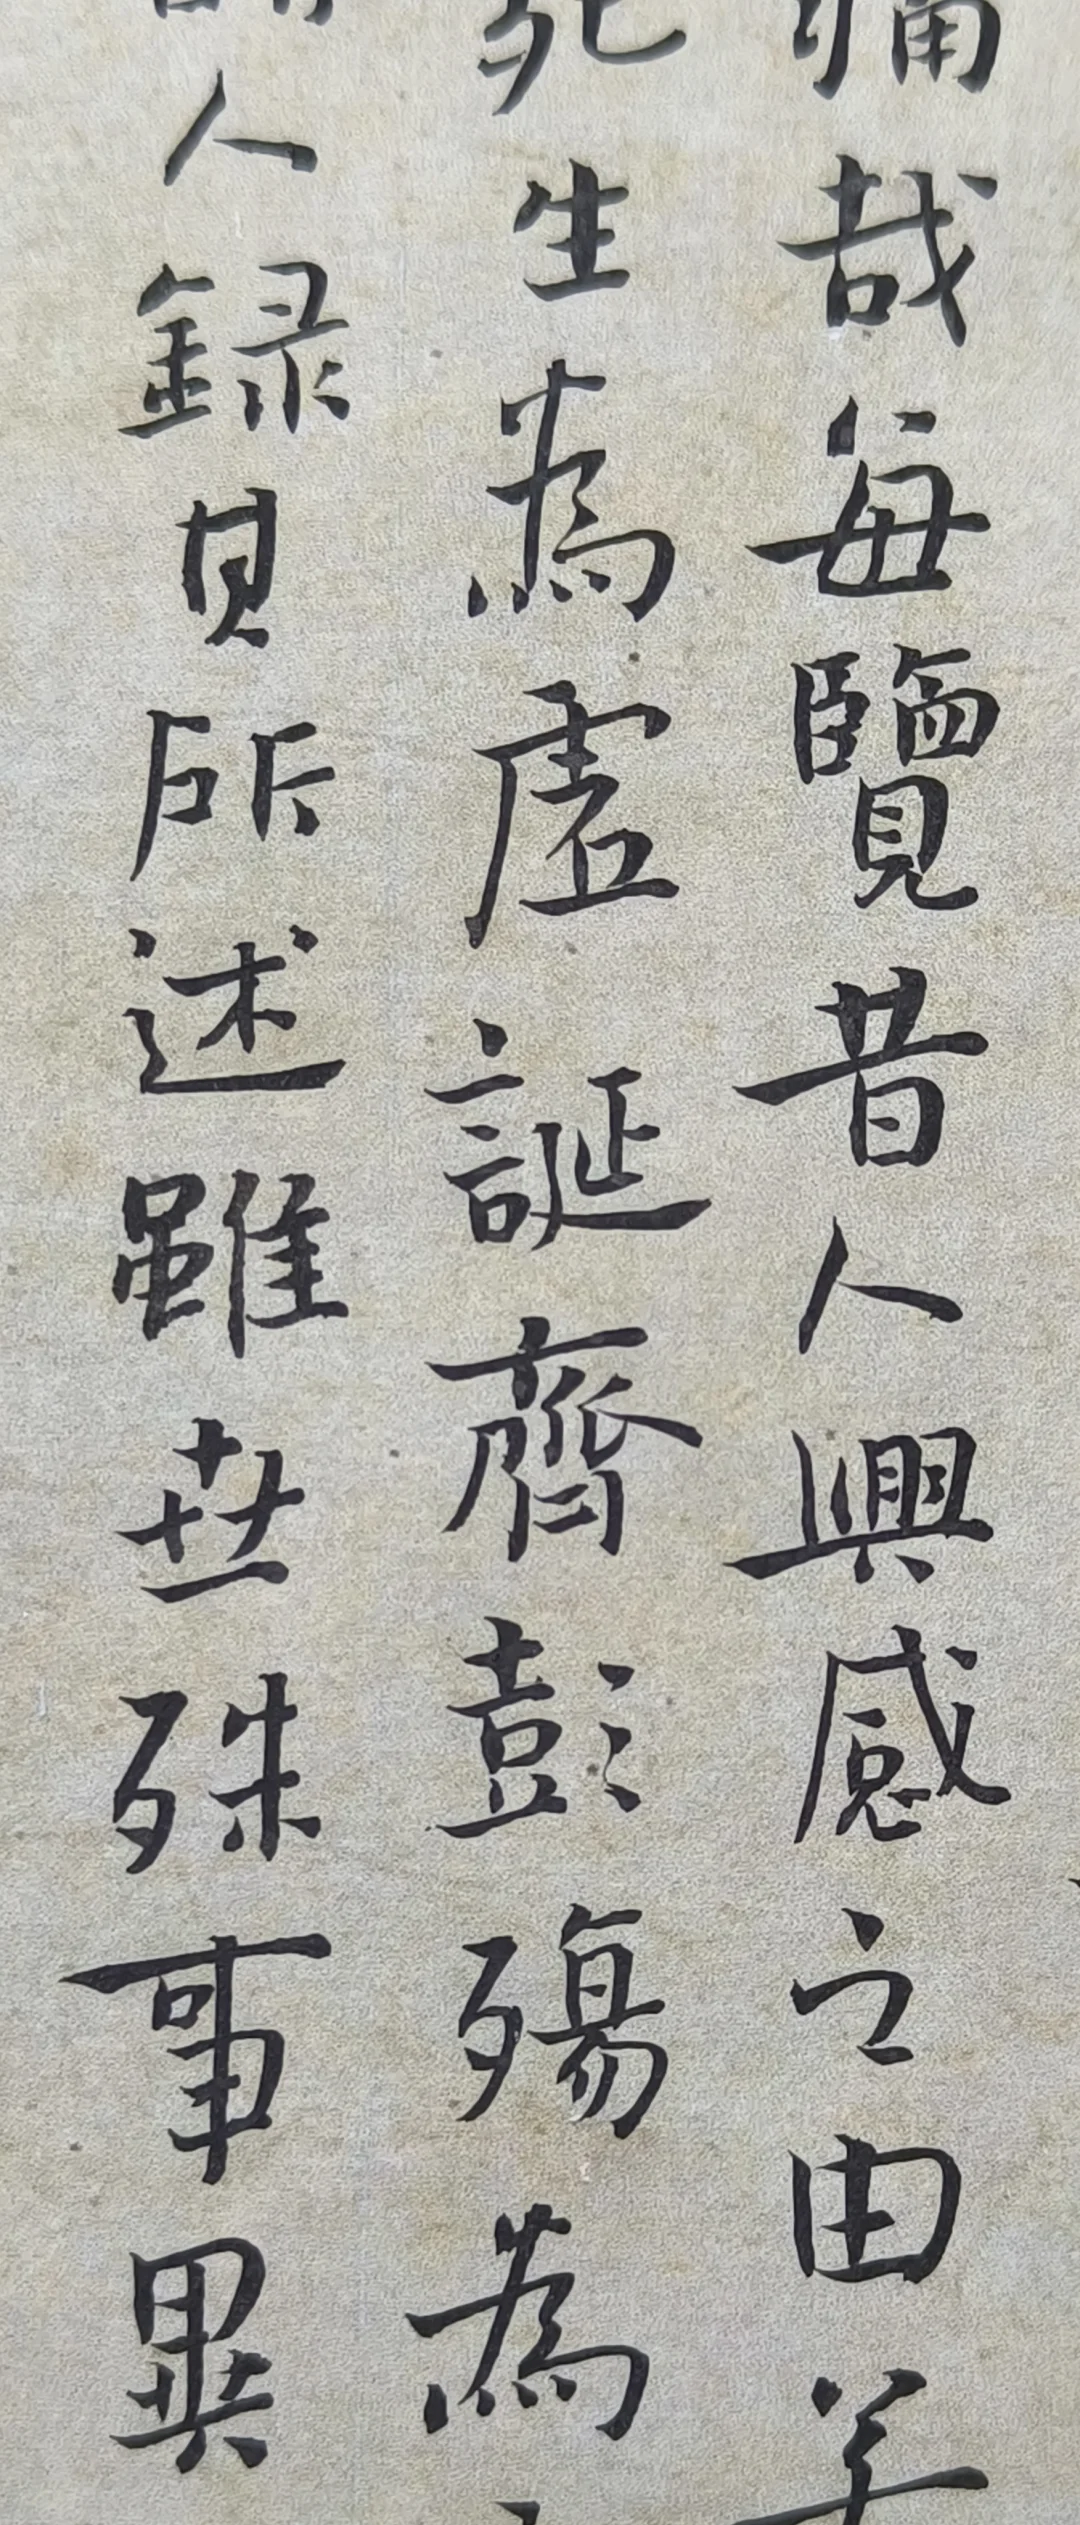 痛哉每覽昔人興感之由
死生為虛誕齊彭殤為
人録其所述雖世殊事異